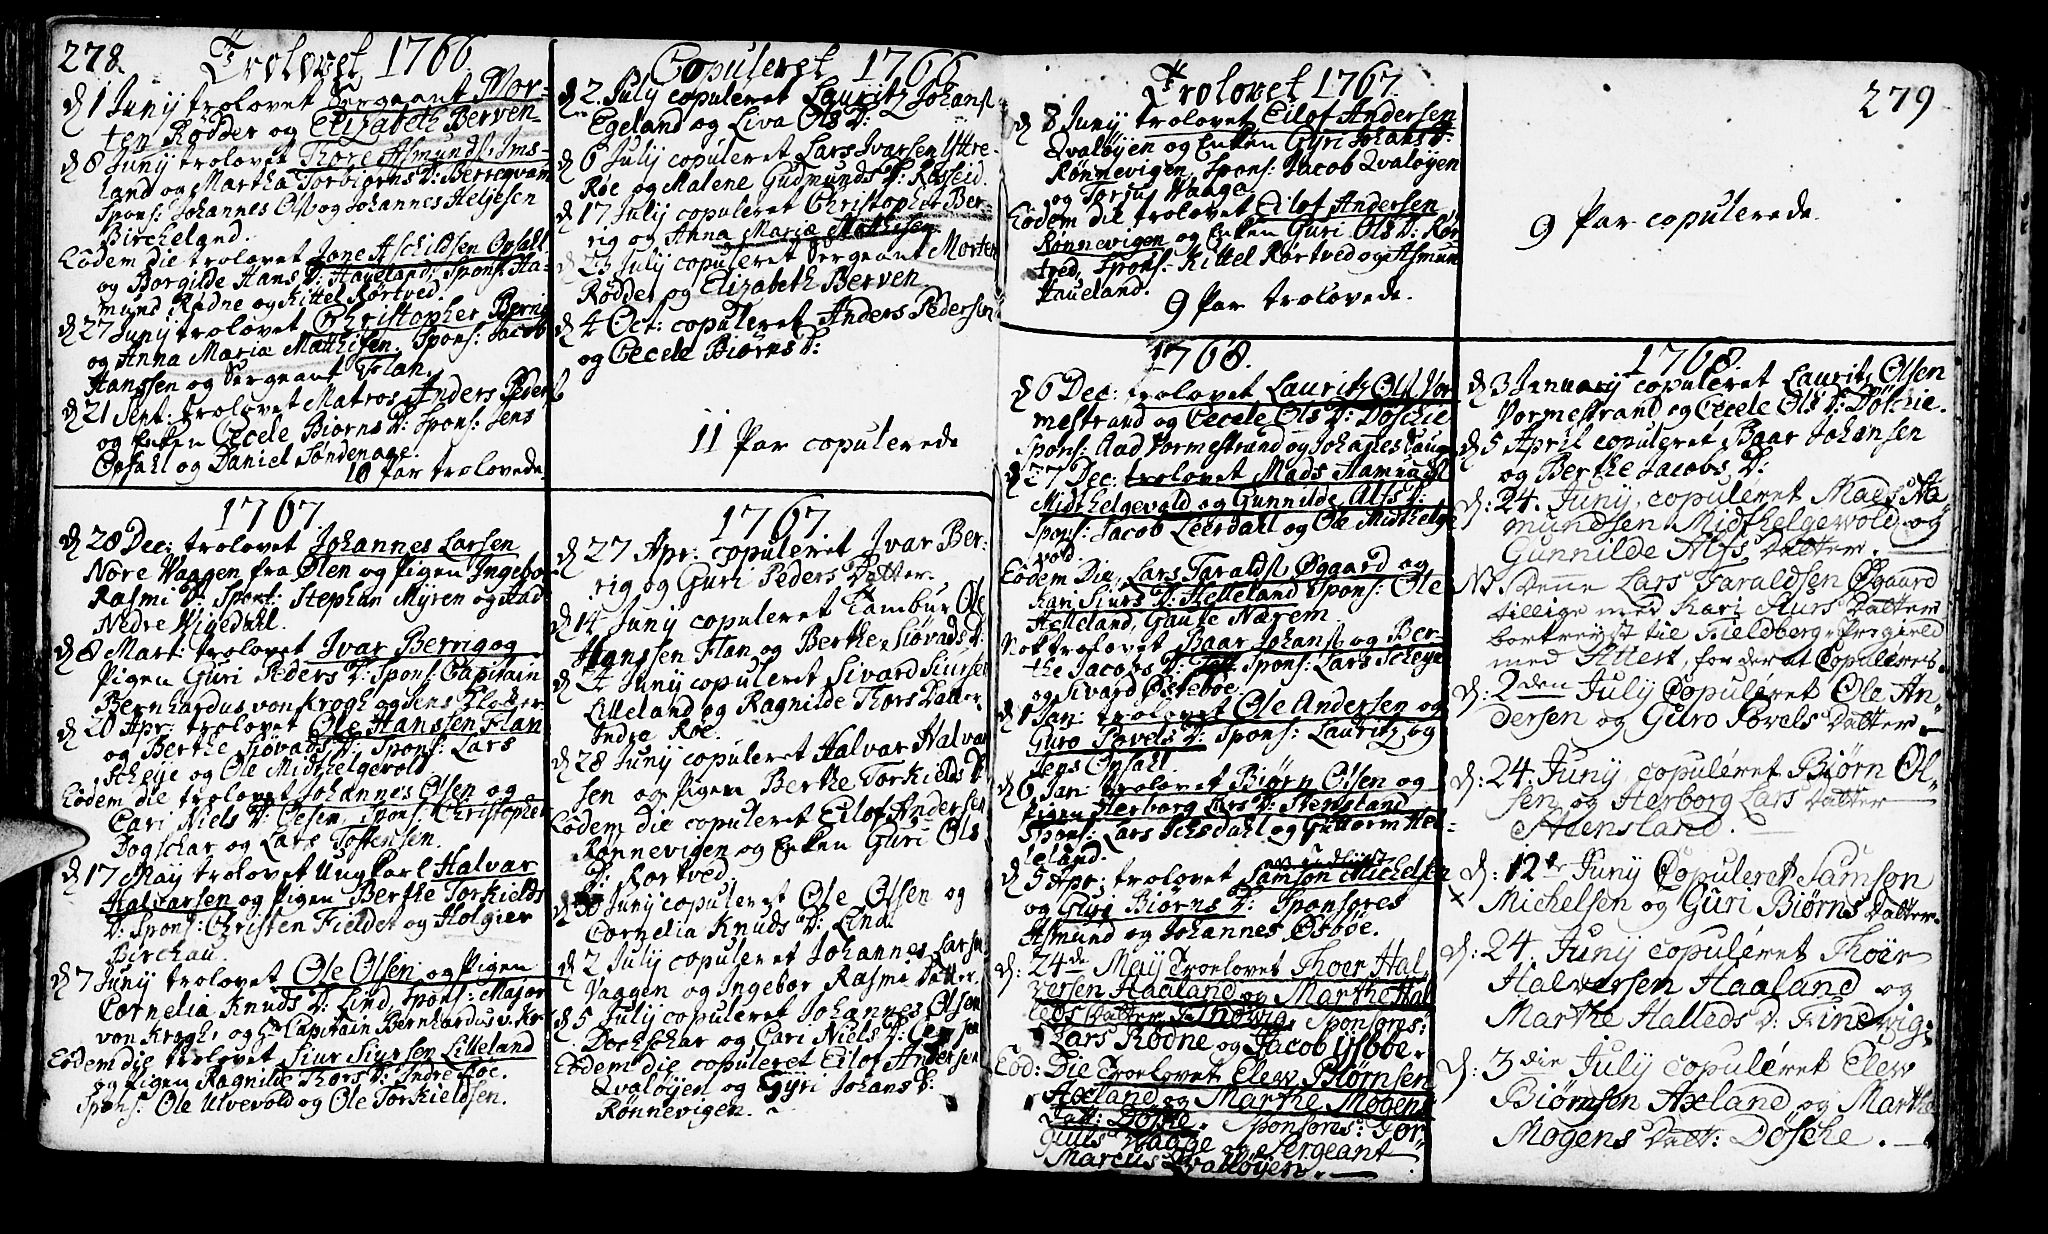 278. Trolovet 1766.
d 1 Junij trolovet Sergeant Mor-
ten Rødder og Elizabeth Berven
d 8 Junij trolovet Thore Asmunds. Ims-
land og Martha Torbiørns D: Berreqvam
Spons: Johannes Ols. og Johannes Heljesen
Bircheland.
Eodem die trolovet Jone Aschildsen Opsahl
og Borgilde Hans D: Haueland, Spons: Ha-
mund Rødne og Kittel Rørtved.
d 27 Junij trolovet Christopher Berrig
og Anna Maria Mathisen. Spons: Jacob
Hanssen og Sergeant Folan.
d 21 Sept: trolovet Matros Anders Peders.
og Enken Cecele Biørns D: Spons: Jens
Opsahl og Daniel Søndenaae.
10 Par trolovede
1767
d 28 Dec: trolovet Johannes Larsen
Nore Vaagen fra Ølen og Pigen Ingebor
Rasmi D: Spons: Stephan Myren og Aad
Nedre Vigedahl.
d 8 Mart: trolovet Ivar Berrig og
Pigen Guri Peders D: Spons: Capitain
Bernhardus von Krogh og Jens Klocker
d 20 Apr: trolovet Ole Hanssen Flan
og Berthe Siovads D: Spons: Lars
Scheye og Ole Midthelgevold
Eodem die trolovet Johannes Olsen og
Cari Niels D: Oesen, Spons: Christopher
Dogschar og Lars Tostensen.
d 17 Maij trolovet Ungkarl Halvar
Halvarsen og Pigen Berthe Torkields
D: Spons: Christen Fieldet og Holgier
Birchau.
d 7 Junij trolovet Ole Olsen og Pigen
Cornelia Knuds D: Lind, Spons: Major
von Krogh, og Hr Capitain Bernhardus v. Kr:
Eodem die trolovet Siur Siursen Lilleland
og Pigen Ragnilde Thors D: Indre Roe.
Spons: Ole Ulvevold og Ole Torkieldsen.
Copuleret 1766
d 2. Julij copuleret Lauritz Johans.
Egeland og Liva Ols D:
d 6 Julij copuleret Lars Ivarsen Yttre-
Roe og Malene Gudmunds D: Røsseid.
d 17 Julij copuleret Christopher Ber-
rig og Anna Maria Mathisen
d 23 Julij copuleret Sergeant Morten
Rødder og Elizabeth Berven
d 4 Oct: copuleret Anders Pedersen
og Cecele Biørns D:
11 Par copulerede
1767
d 27 Apr: copuleret Ivar Ber-
rig og Guri Peders Datter.
d 14 Junij copuleret Tambur Ole
Hanssen Flan og Berthe Siovads D:
d 24 Junij copuleret Sivard Siursen
Lilleland og Ragnilde Thors Datter
Indre Roe.
d 28 Junij copuleret Halvar Halvar
sen og Pigen Berthe Torkields D:
Eodem die copuleret Eilof Andersen
Rønnevigen og Enken Guri Ols
D: Rørtved.
d 30 Junij copuleret Ole Olsen og
Cornelia Knuds D: Lind.
d 2 Julij copuleret Johannes Larsen
Vaagen og Ingebor Rasmi Datter.
d 5 Julij copuleret Johannes Olsen
Dockschar og Cari Niels D: Oesen
Eodem die copuleret Eilof Andersen
Qvaløyen og Gyri Johans D:
Rønnevigen.
Trolovet 1767
d 8 Junij trolovet Eilof Andersen
Qvaløyen og Enken Gyri Johans D:
Rønnevigen, Spons: Jacob Qvaløyen
og Torju Vaage
Eodem die trolovet Eilof Andersen
Rønnevigen og Enken Guri Ols D: Rør
tved, Spons: Kittel Rørtved og Asmun
Haueland.
9 Par trolovede.
1768.
d 6 Dec: trolovet Lauritz Ols. Vor
mestrand og Cecele Ols D: Døschie
Spons: Aad Vormestrand og Johannes Sauga
d 27 Dec: trolovet Mads Hamunds.
Midthelgevold og Gunnilde Alfs D:
Spons: Jacob Leerdahl og Ole Midthelge
vold.
Eodem Die, Lars Taralds. Øgaard og
Kari Siurs D: Helleland Spons: Ole
Helleland, Gaute Nærem
Nok trolovet Baar Johans. og Ber-
the Jacobs D: Spons: Lars Scheye
og Sivard Østebøe.
d 1 Jan: trolovet Ole Andersen og
Guro Povels D: Spons: Lauritz og
Jens Opsahl
d 6 Jan: trolovet Biørn Olsen og
Pigen Herborg Lars D: Stensland
Spons: Lars Ichsdahl og Guttorm Hel-
leland.
d 5 Apr: trolovet Samson Michelsen
og Guri Biørns D: Sponsores
Asmund og Johannes Øsbøe.
d: 24de Maij Troelovet Thoer Hal
versen Haaland og Marthe Hal
leds Datter Findwig. Sponsores:
Lars Rødne og Jacob Ysbøe.
Eod: Die Troelovet Elew Biørnsen
Axeland og Marthe Mogens
Datt: Dosche. Sponsores: Tor-
giuls Waage og Sergeant
Marcus Qvalløyen.
279
9 Par copulerede.
1768.
d 3 Januarij copuleret Lauritz Olsen
Vormestrand og Cecele Ols D: Døschie.
d 5 April copuleret Baar Johansen
og Berthe Jacobs D:
d: 24. Junij, copuléret Mads Ha
mundsen Midthelgewold og
Gunnilde Alfs Datter.
NB Denne Lars Taraldsen Øgaard
tillige med Kari Siurs Datter
bortreyst til Fieldberg-Præstegield
med Attest, for der at Copuleres.
d: 2den Julij Copuléret Ole An-
dersen og Guro Povels Datter
d: 24. Junij, copuléret Biørn Ol-
sen og Herborg Lars Datter
Steensland.
d: 12te Junij Copuleret Samson
Michelsen og Guri Biørns Datter.
d: 24. Junij copuléret Thoer
Halversen Haaland og
Marthe Halleds D: Findwig.
d: 3die Julij copuléret Elev
Biørnsen Axland og Marthe
Mogens Datt: Dosche.